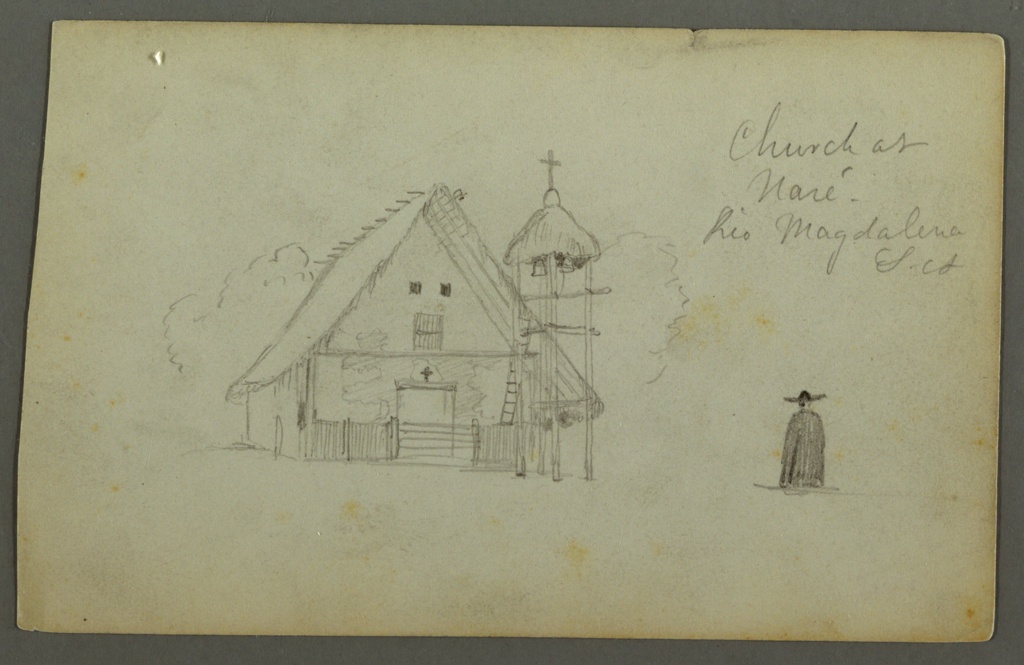 Church at
Naré.
Rio Magdalena